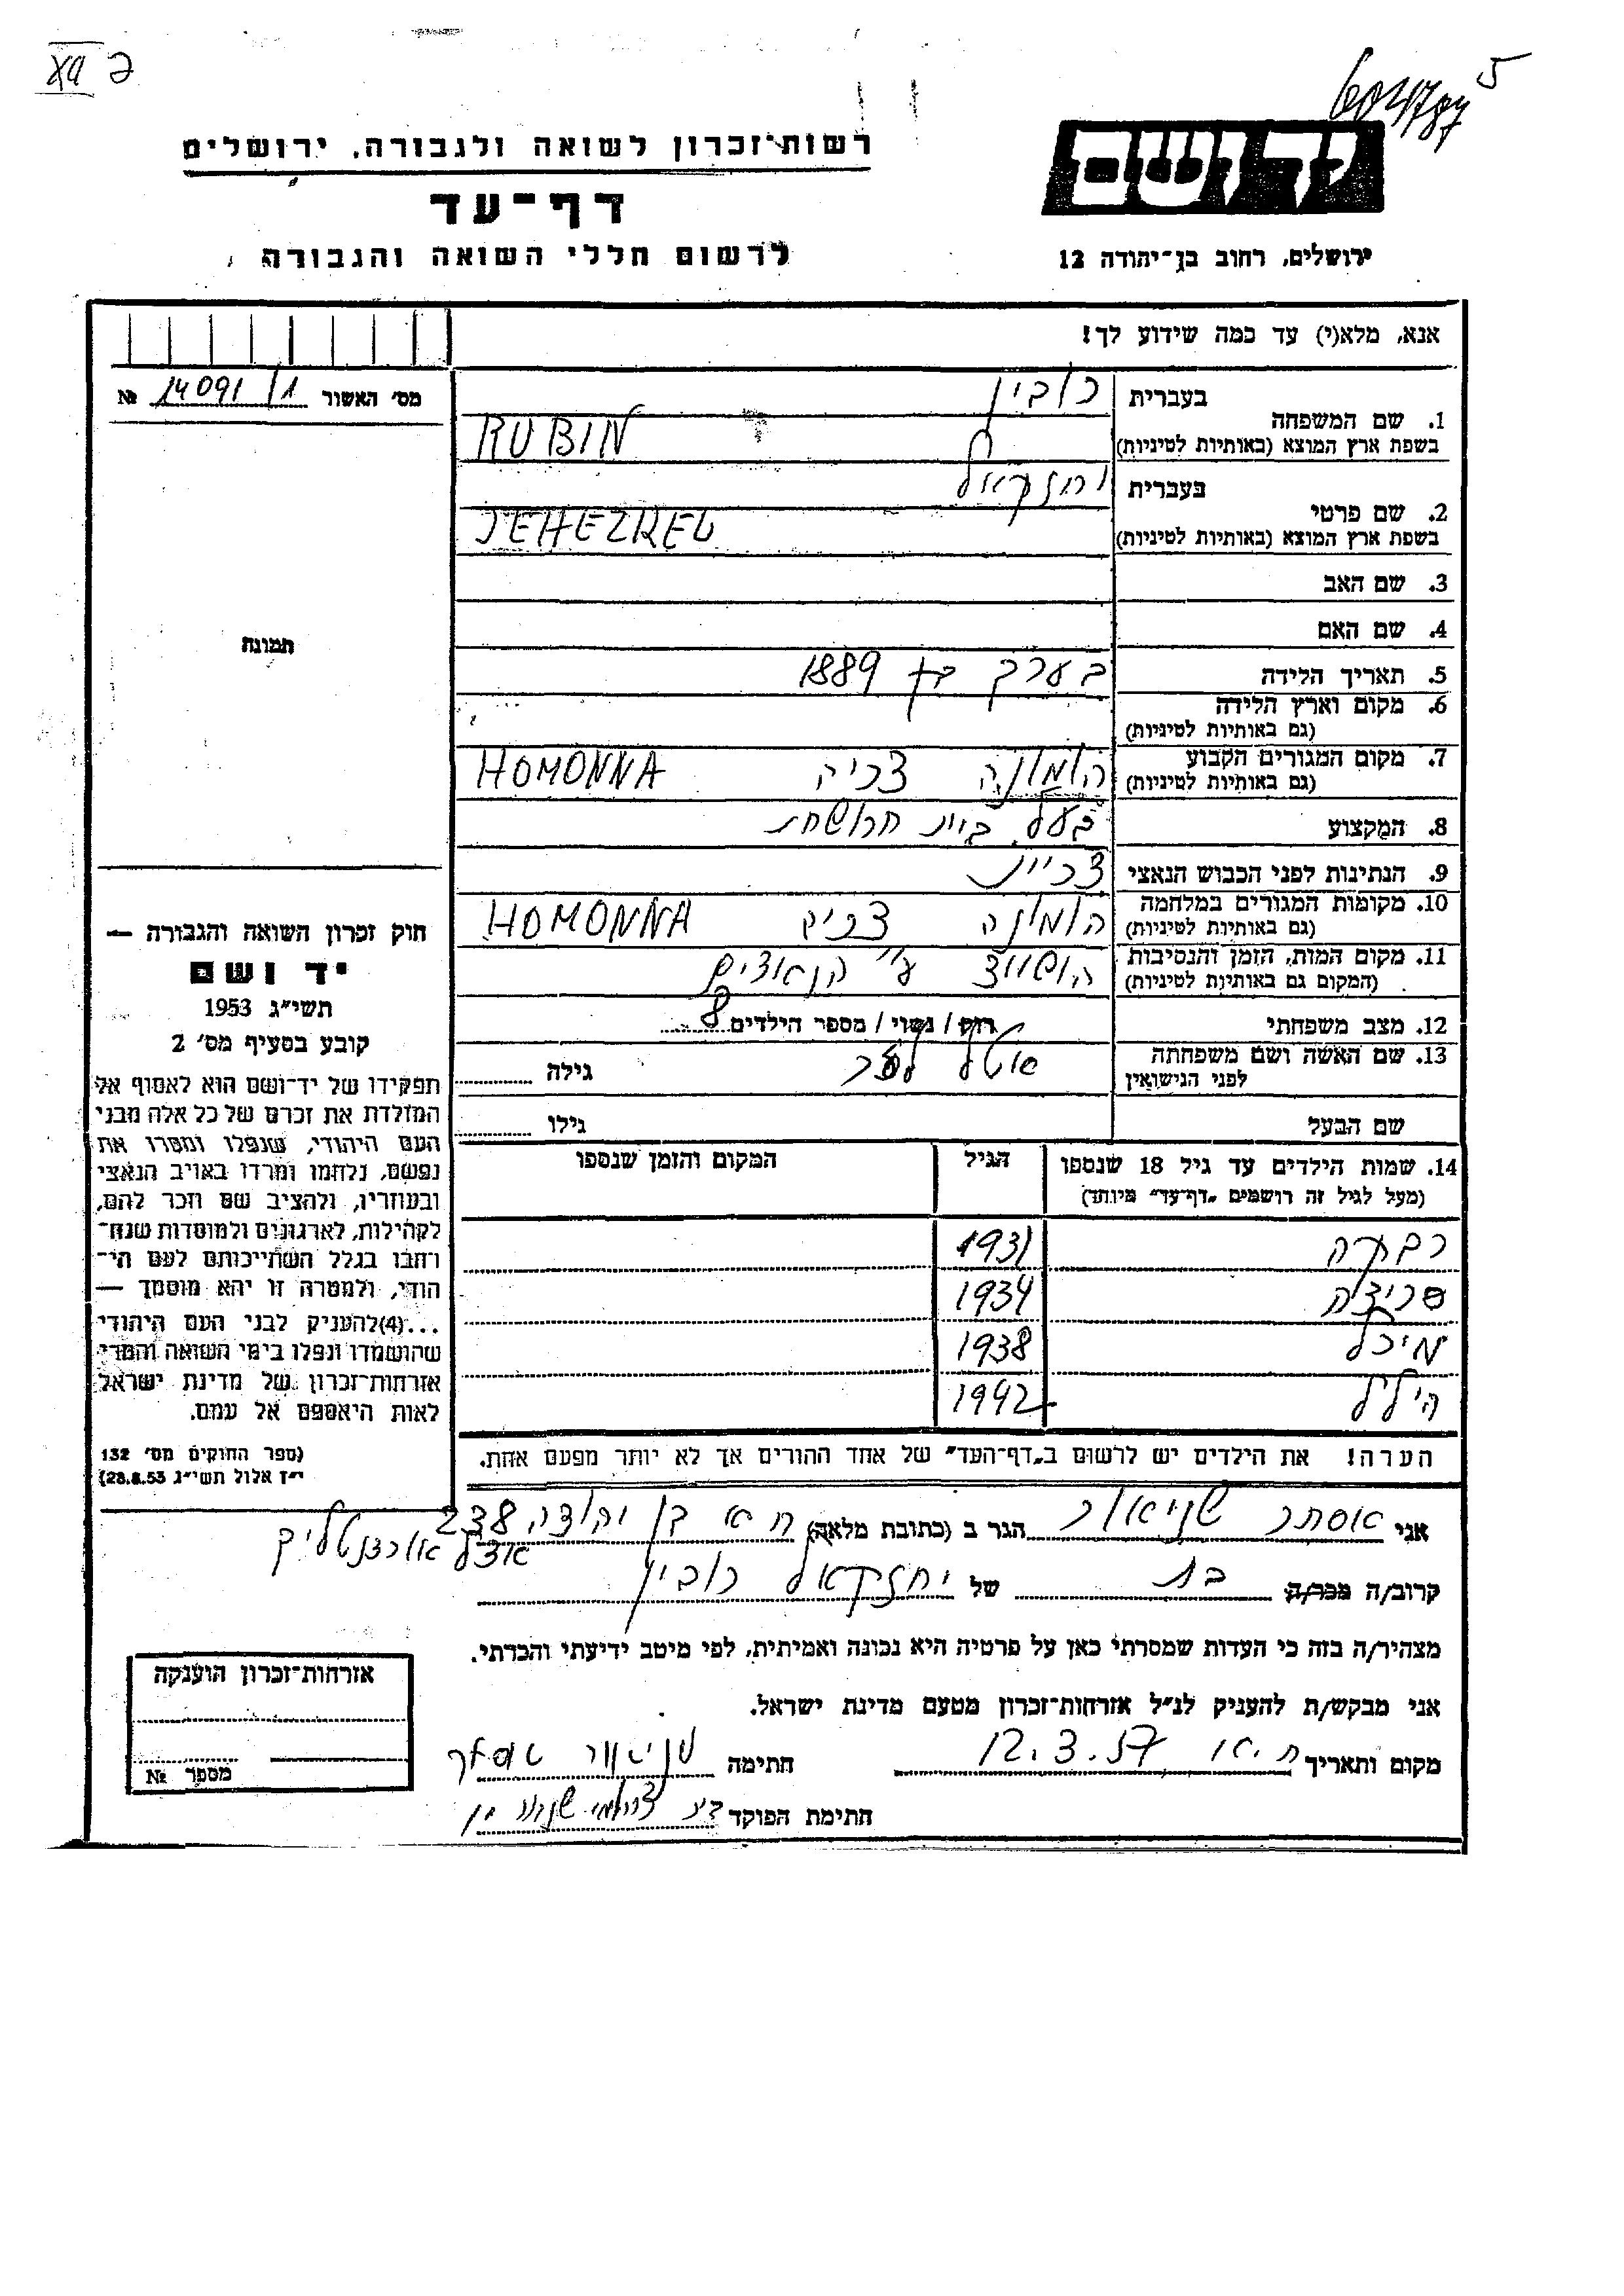 XII
רשות־זכרון לשואה ולגבורה, ירושלים
דף־עד
לרשום חללי השואה והגבורה
ידושם
ירושלים, רחוב בן־יהודה 12
אנא, מלא(י) עד כמה שידוע לך!
מס' האשור № 14091/1
תמונה
1. שם המשפחה
בעברית רובין
בשפת ארץ המוצא (באותיות לטיניות) RUBIN
2. שם פרטי
בעברית יחזקאל
בשפת ארץ המוצא (באותיות לטיניות) JEHEZKEL
3. שם האב
4. שם האם
5. תאריך הלידה בערך 1889
6. מקום וארץ הלידה
(גם באותיות לטיניות)
7. מקום המגורים הקבוע הומונה צכיה HOMONNA
(גם באותיות לטיניות)
8. המקצוע בעל בית חרושת
9. הנתינות לפני הכבוש הנאצי צכית
10. מקומות המגורים במלחמה הומונה צכיה HOMONNA
(גם באותיות לטיניות)
11. מקום המות, הזמן והנסיבות ע"י הנאצים
(המקום גם באותיות לטיניות)
12. מצב משפחתי רוק / נשוי / מספר הילדים 8
13. שם האשה ושם משפחתה אטל גילה
לפני הנישואין
שם הבעל גילו
14. שמות הילדים עד גיל 18 שנספו הגיל המקום והזמן שנספו
(מעל לגיל זה רושמים „דף־עד" מיוחד)
רבקה 1931
פריצה 1934
מיכל 1938
הילל 1942
הערה! את הילדים יש לרשום ב„דף־העד" של אחד ההורים אך לא יותר מפעם אחת.
חוק זכרון השואה והגבורה —
יד ושם
תשי״ג 1953
קובע בסעיף מס' 2
תפקידו של יד־ושם הוא לאסוף אל
המולדת את זכרם של כל אלה מבני
העם היהודי, שנפלו ומסרו את
נפשם, נלחמו ומרדו באויב הנאצי
ובעוזריו, ולהציב שם וזכר להם,
לקהילות, לארגונים ולמוסדות שנח־
רחבו בגלל השתייכותם לעם הי־
הודי, ולמטרה זו יהא מוסמך —
...(4)להעניק לבני העם היהודי
שהושמדו ונפלו בימי השואה והמרי
אזרחות־זכרון של מדינת ישראל
לאות היאספם אל עמם.
(ספר החוקים מס' 132
י״ז אלול תשי״ג 28.8.53)
אני אסתר שניאור הגר ב (כתובת מלאה) ת א בן יהודה 238
אצל
קרוב/ה מכר/ה בת של יחזקאל רובין
מצהיר/ה בזה כי העדות שמסרתי כאן על פרטיה היא נכונה ואמיתית, לפי מיטב ידיעתי והכרתי.
אני מבקש/ת להעניק לנ״ל אזרחות־זכרון מטעם מדינת ישראל.
מקום ותאריך ת.א 12.3.57 חתימה שניאור אסתר
חתימת הפוקד
אזרחות־זכרון הוענקה
מספר №